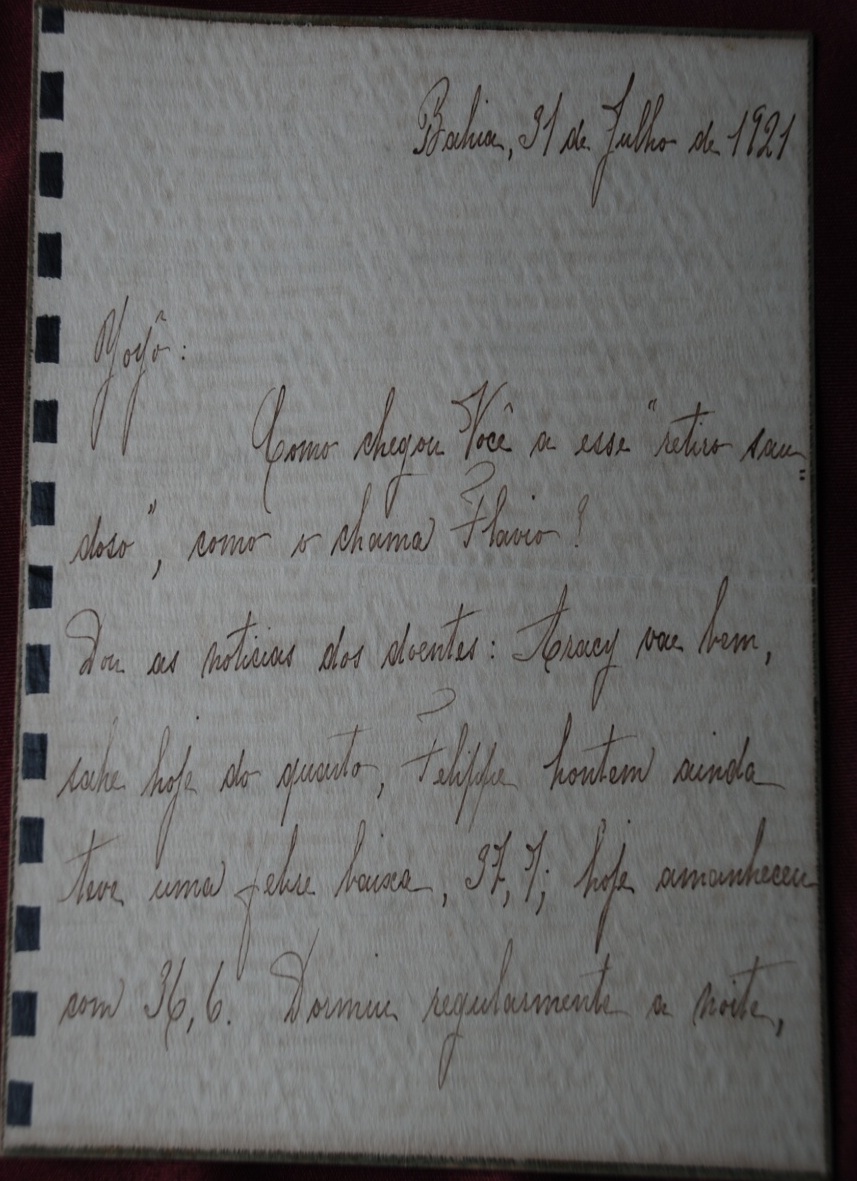 Bahia, 31 de Julho de 1921
Yoyô:
Como chegou Você a esse "retiro sau=
doso", como o chama Flavio?
Dou as noticias dos doentes: Aracy vae bem,
sahe hoje do quarto, Felippe hontem ainda
teve uma febre baixa, 37,7; hoje amanheceu
com 36,6. Dormiu regularmente a noite,